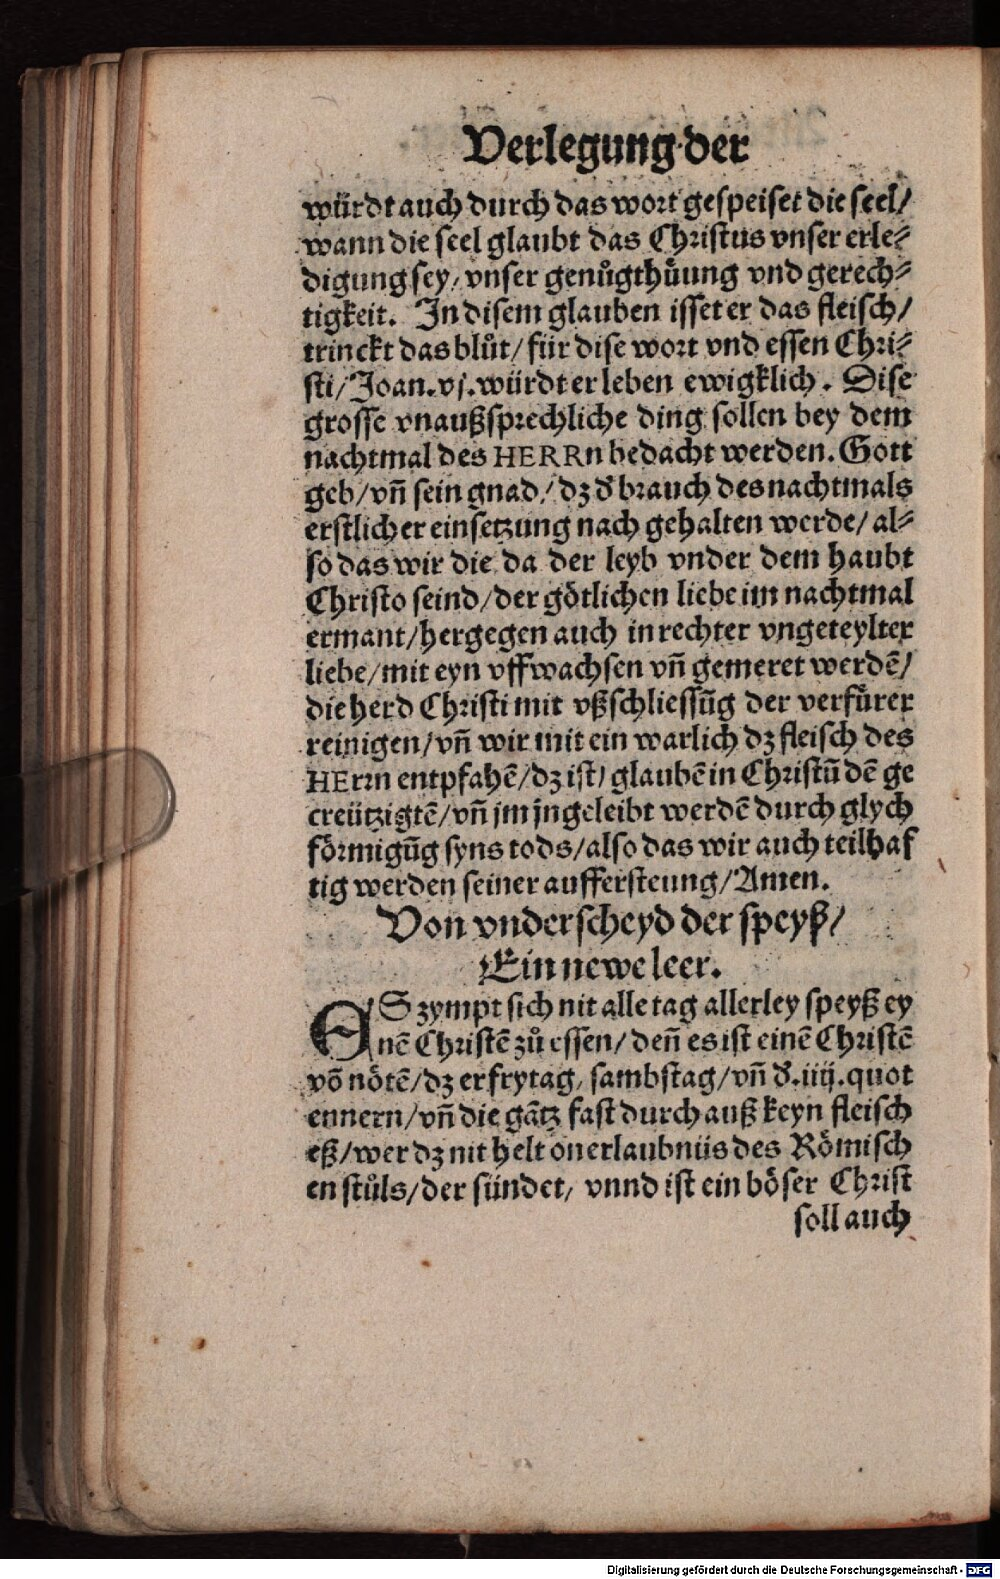 Verlegung der
würdt auch durch das wort gespeiset die seel/
wann die seel glaubt das Christus vnser erle⸗
digung sey/ vnser genůgthüung vnd gerech⸗
tigkeit. In disem glauben isset er das fleisch/
trinckt das blůt/ für dise wort vnd essen Chri⸗
sti/ Joan. vj. würdt er leben ewigklich. Dise
grosse vnaußsprechliche ding sollen bey dem
nachtmal des HERRn bedacht werden. Gott
geb/ vñ sein gnad/ dz d̕ brauch des nachtmals
erstlicher einsetzung nach gehalten werde/ al⸗
so das wir die da der leyb vnder dem haubt
Christo seind/ der götlichen liebe im nachtmal
ermant/ hergegen auch in rechter vngeteylter
liebe/ mit eyn vffwachsen vñ gemeret werdē/
die herd Christi mit vßschliessūg der verfürer
reinigen/ vñ wir mit ein warlich dz fleisch des
HErrn entpfahē/ dz ist/ glaubē in Christū dē ge
creützigtē/ vñ jm jngeleibt werdē durch glych
förmigūg syns tods/ also das wir auch teilhaf
tig werden seiner auffersteung/ Amen.
Von vnderscheyd der speyß/
Ein newe leer.
ES zympt sich nit alle tag allerley speyß ey
nē Christē zů essen/ deñ es ist einē Christē
vō nötē/ dz er frytag, sambstag/ vñ d̕ .iiij. quot
ennern/ vñ die gātz fast durch auß keyn fleisch
eß/ wer dz nit helt on erlaubnüs des Römisch
en stůls/ der sündet/ vnnd ist ein böser Christ
soll auch
Digitalisierung gefördert durch die Deutsche Forschungsgemeinschaft - DFG